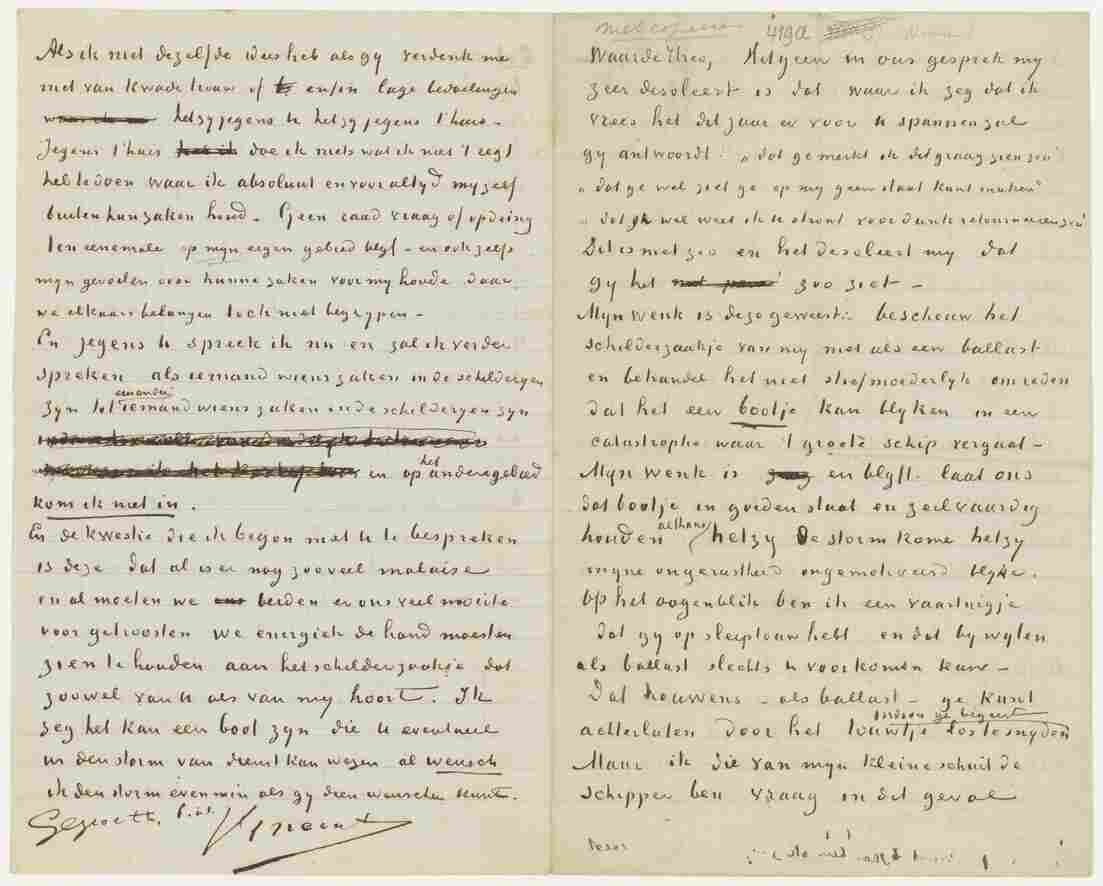 Als ik niet dezelfde idees heb als gy verdenk me
niet van kwade trouw of en/in lage bedoelingen
hetzy jegens U hetzy jegens t'huis –
Jegens t'huis doe ik niets wat ik niet 't regt
heb te doen waar ik absoluut en voor altyd myzelf
buiten hun zaken houd – Geen raad vraag of opdring
ten eenemale op myn eigen gebied blyf – en ook zelfs
myn gevoelen over hunne zaken voor my houde daar
we elkaars belangen toch niet begrypen –
En jegens U spreek ik nu en zal ik verder
spreken als iemand wiens zaken in de schilderyen
zyn tot iemand wiens zaken in de schilderyen zyn
en op het andere gebied
kom ik niet in.
En de kwestie die ik begon met U te bespreken
is deze dat al is er nog zooveel malaise
en al moeten we beiden er ons veel moeite
voor getroosten we energiek de hand moesten
zien te houden aan het schilderzaakje dat
zoowel van U als van my hoort. Ik
zeg het kan een boot zyn die U eventueel
in den storm van dienst kan wezen al wensch
ik den storm evenmin als gy dien wenschen kunt.
Gegroet, Vincent
419a
Waarde Theo, Hetgeen in ons gesprek my
zeer desoleert is dat waar ik zeg dat ik
vrees het dit jaar er voor U spannen zal
gy antwoordt: „dat ge merkt ik dit graag zien zou”
„dat ge wel ziet ge op my geen staat kunt maken”
„dat ge wel weet ik U stront voor dank retourneeren zou”
Dit is niet zoo en het desoleert my dat
gy het zoo ziet –
Myn wenk is deze geweest: beschouw het
schilderzaakje van my niet als een ballast
en behandel het niet stiefmoederlyk om reden
dat het een bootje kan blyken in een
catastrophe waar 't groote schip vergaat –
Myn wenk is en blyft. laat ons
dat bootje in goeden staat en zeilvaardig
houden althans hetzy de storm kome hetzy
myne ongerustheid ongemotiveerd blyke.
Op het oogenblik ben ik een vaartuigje
dat gy op sleeptouw hebt en dat by wylen
als ballast slechts U voorkomen kan –
Dat trouwens – als ballast – ge kunt
achterlaten door het touwtje indien ge begeert los te snyden
Maar ik die van myn kleine schuit de
schipper ben vraag in dit geval